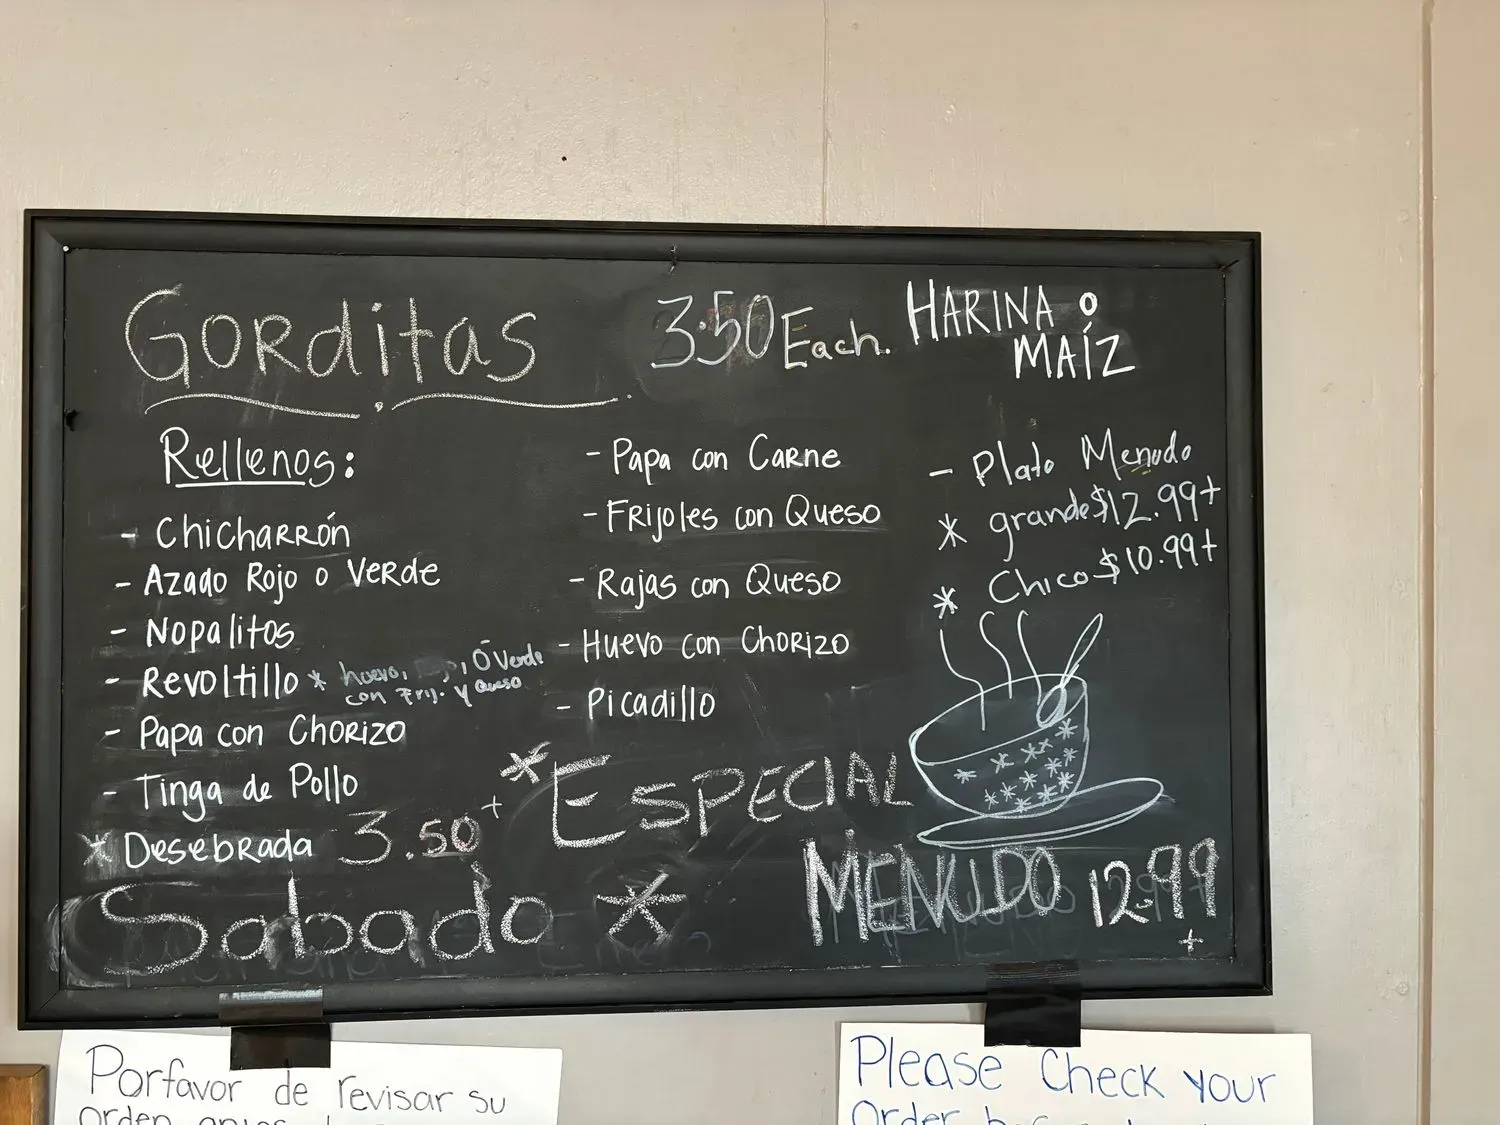 Gorditas 3.50 Each. HARINA o MAÍZ
Rellenos:
- Chicharrón
- Azado Rojo o Verde
- Nopalitos
- Revoltillo * huevo, , Ó Verde
con Frij. y Queso
- Papa con Chorizo
- Tinga de Pollo
* Desebrada 3.50+
- Papa con Carne
- Frijoles con Queso
- Rajas con Queso
- Huevo con Chorizo
- Picadillo
- Plato Menudo
* grande $12.99+
* Chico $10.99+
*ESPECIAL
Sabado *
MENUDO 12.99
+
Porfavor de revisar su
Please Check your
Order